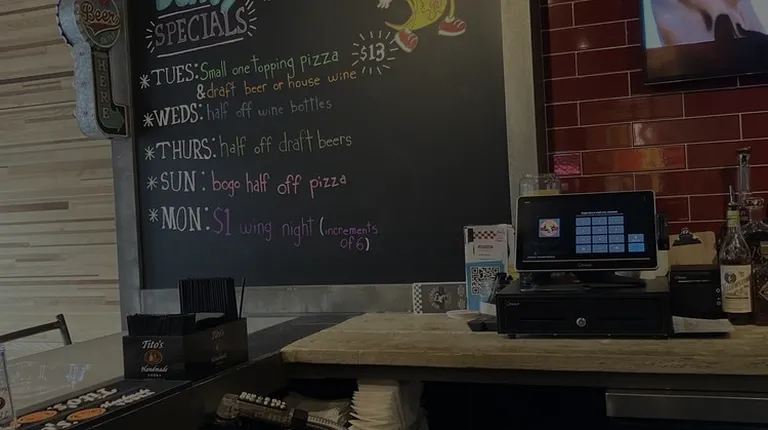 Beer
HERE
Daily
SPECIALS
$13
*TUES: Small one topping pizza
& draft beer or house wine
*WEDS: half off wine bottles
*THURS: half off draft beers
*SUN: bogo half off pizza
*MON: $1 wing night (increments
of 6)
Tito's
Handmade
Tito's